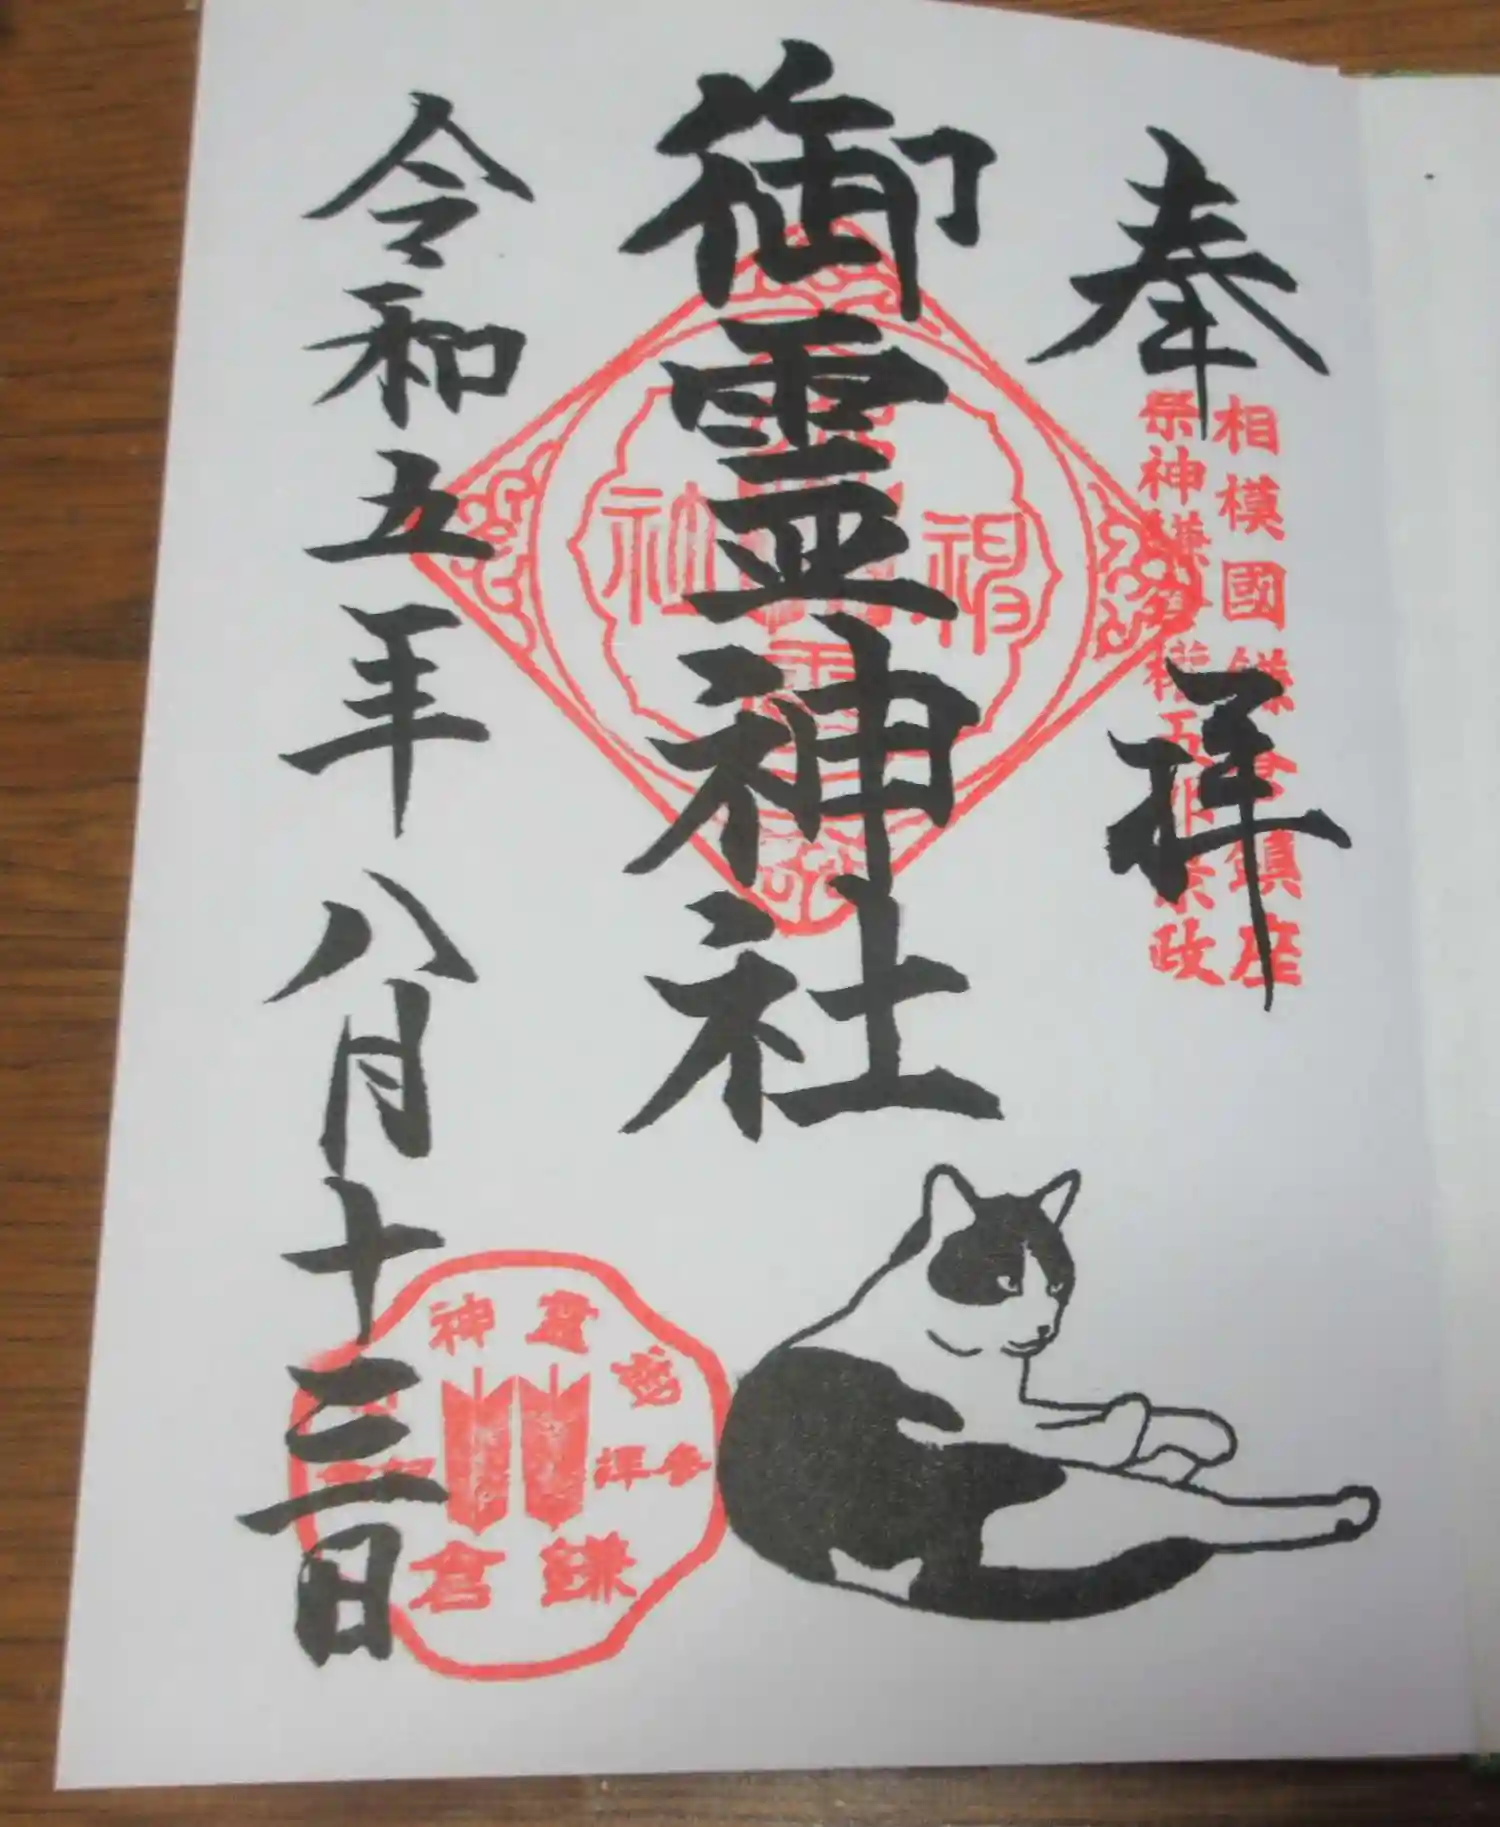 奉拝
相模國鎌倉鎮座
祭神鎌倉権五郎景政
御霊神社
令和五年八月十三日
神霊
鎌倉